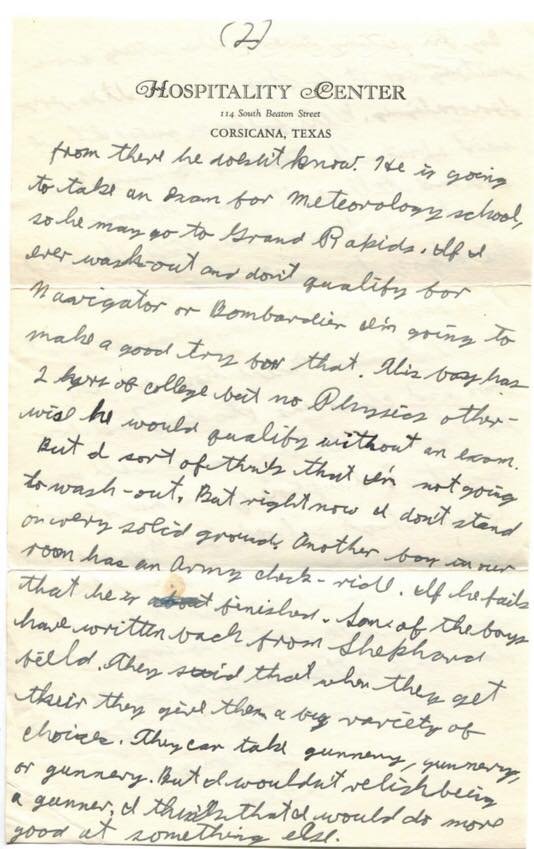 (2)
HOSPITALITY CENTER
114 South Beaton Street
CORSICANA, TEXAS
from there he doesn't know. He is going
to take an exam for Meteorology school,
so he may go to Grand Rapids. If I
ever wash-out and don't qualify for
Navigator or Bombardier I'm going to
make a good try for that. This boy has
2 yers of college but no Physics other-
wise he would qualify without an exam.
But I sort of think that I'm not going
to wash-out. But right now I don't stand
on very solid ground. Another boy in our
room has an Army check-ride. If he fails
that he is finished. Some of the boys
have written back from Shephard
field. They said that when they get
their they give them a big variety of
choices. They can take gunnery, gunnery,
or gunnery. But I wouldn't relish being
a gunner, I think that I would do more
good at something else.